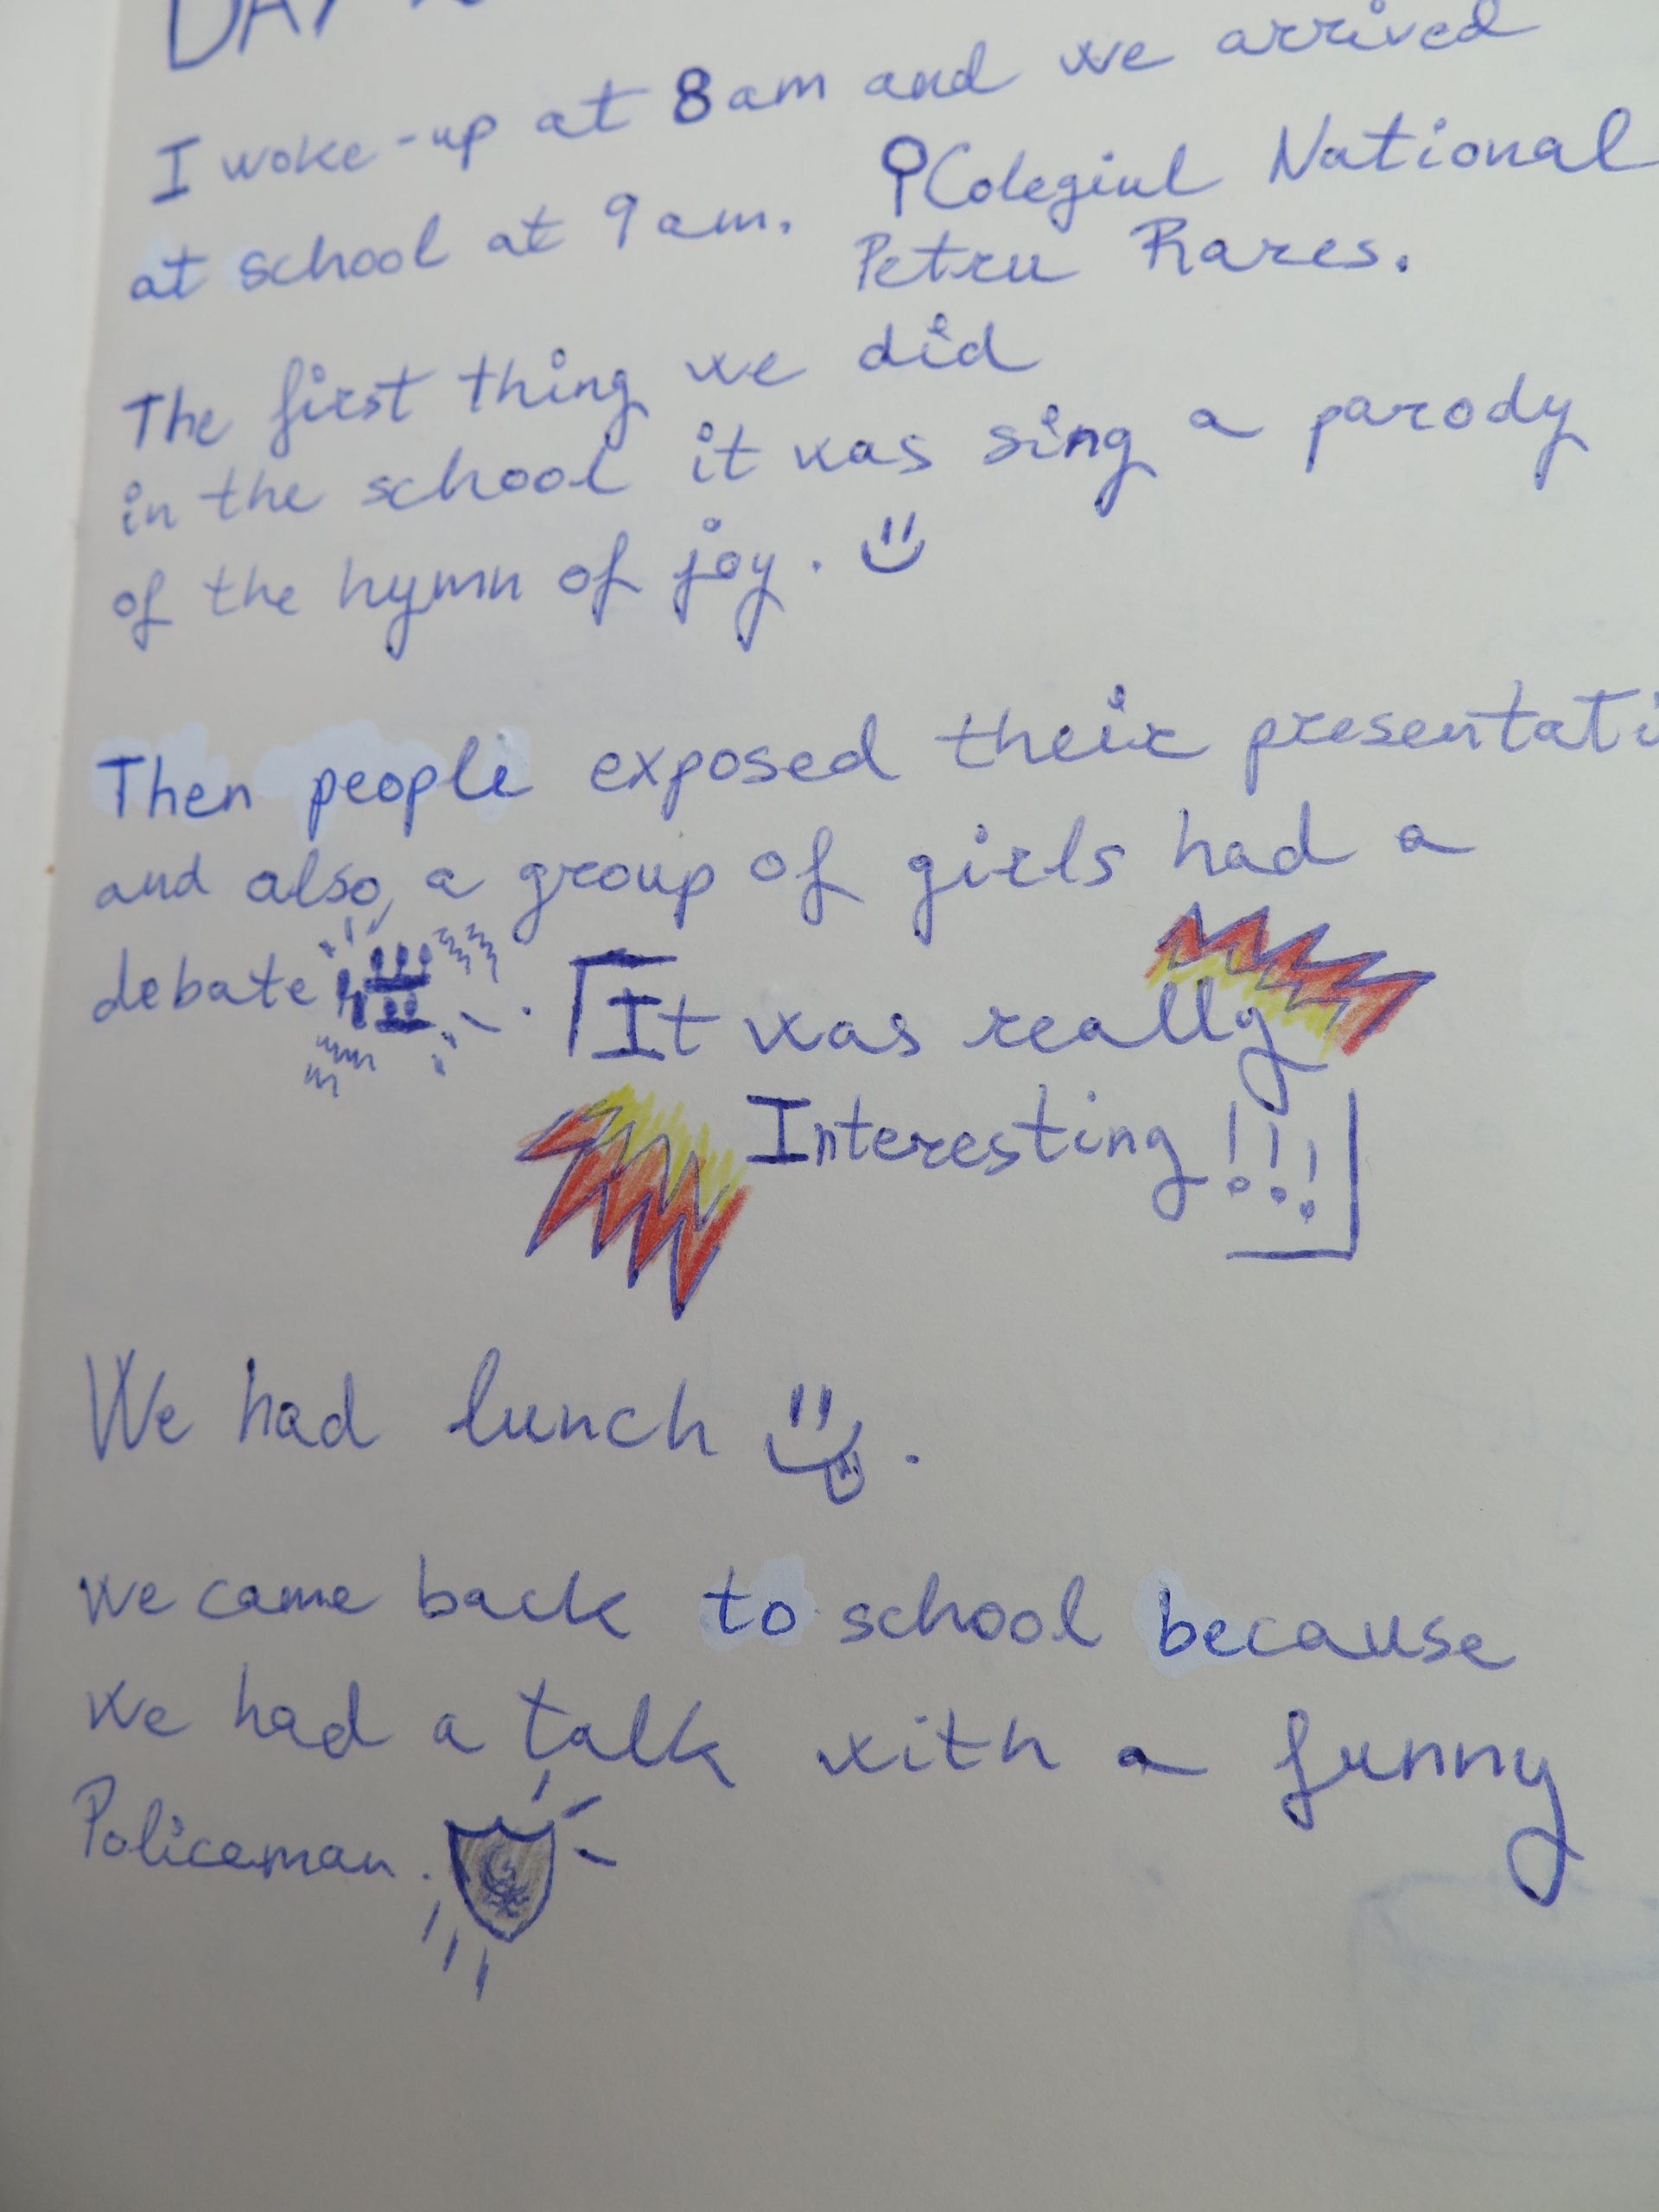 DAY
I woke-up at 8 am and we arrived
at school at 9 am. Colegiul National
Petru Rares.
The first thing we did
in the school it was sing a parody
of the hymn of joy.
Then people exposed their presentati
and also, a group of girls had a
debate . It was really
Interesting !!!
We had lunch .
We came back to school because
we had a talk with a funny
Policeman.